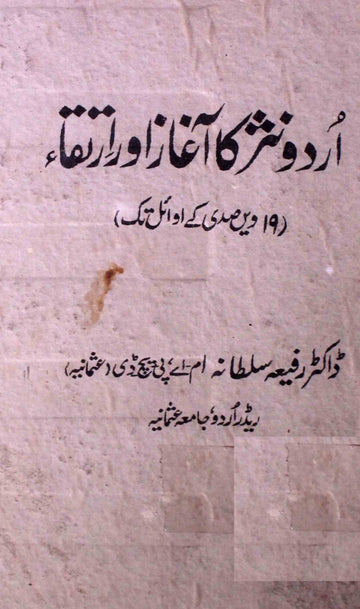 اُردو نثر کا آغاز اور ارتقاء
(۱۹ ویں صدی کے اوائل تک)
ڈاکٹر رفیعہ سلطانہ ام۔اے، پی ایچ ڈی (عثمانیہ)
ریڈر اُردو، جامعہ عثمانیہ